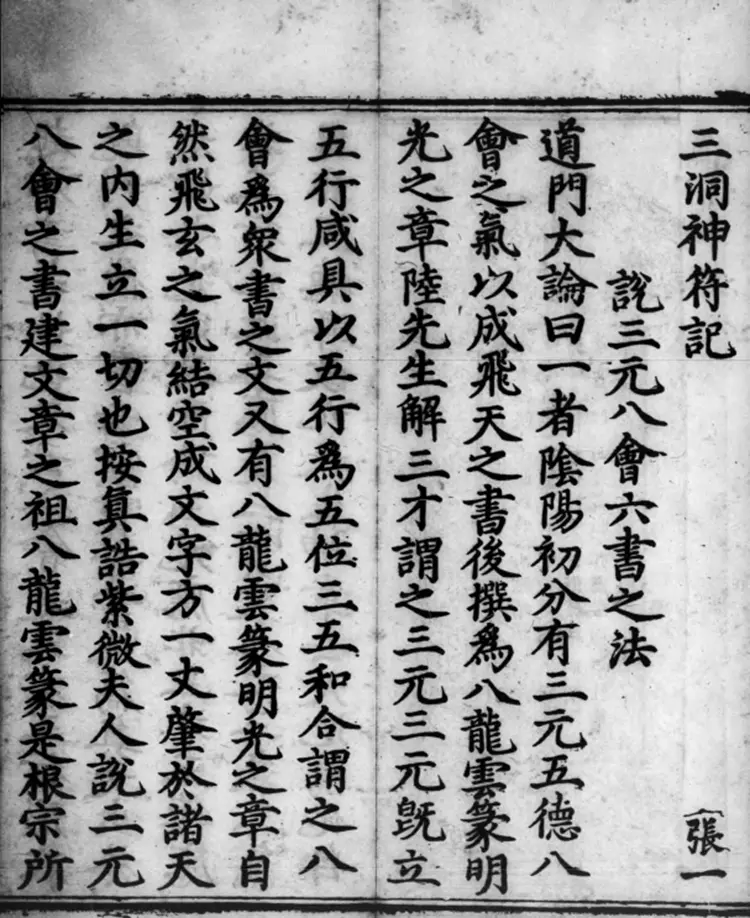 三洞神符記 張一
說三元八會六書之法
道門大論曰一者陰陽初分有三元五德八
會之氣以成飛天之書後撰為八龍雲篆明
光之章陸先生解三才謂之三元三元旣立
五行咸具以五行為五位三五和合謂之八
會為衆書之文又有八龍雲篆明光之章自
然飛玄之氣結空成文字方一丈肇於諸天
之内生立一切也按真誥紫微夫人說三元
八會之書建文章之祖八龍雲篆是根宗所